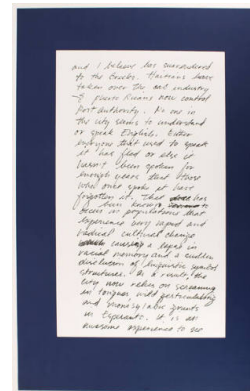 and I believe has surrendered
to the Greeks. Haitians have
taken over the art industry
& Puerto Ricans now control
Port Authority. No one in
the city seems to understand
or speak English. Either
everyone that used to speak
it has fled or else it
hasn't been spoken for
enough years that those
who once spoke it have
forgotten it. That has
been known
occur in populations that
experience very rapid and
radical cultural change
causing a lapse in
racial memory and a sudden
disclusion of linguistic symbol
structures. As a result, the
city now relies on screaming
in tongues, wild gesticulating
and monosyllabic grunts
in Esperanto. It is an
awesome experience to see